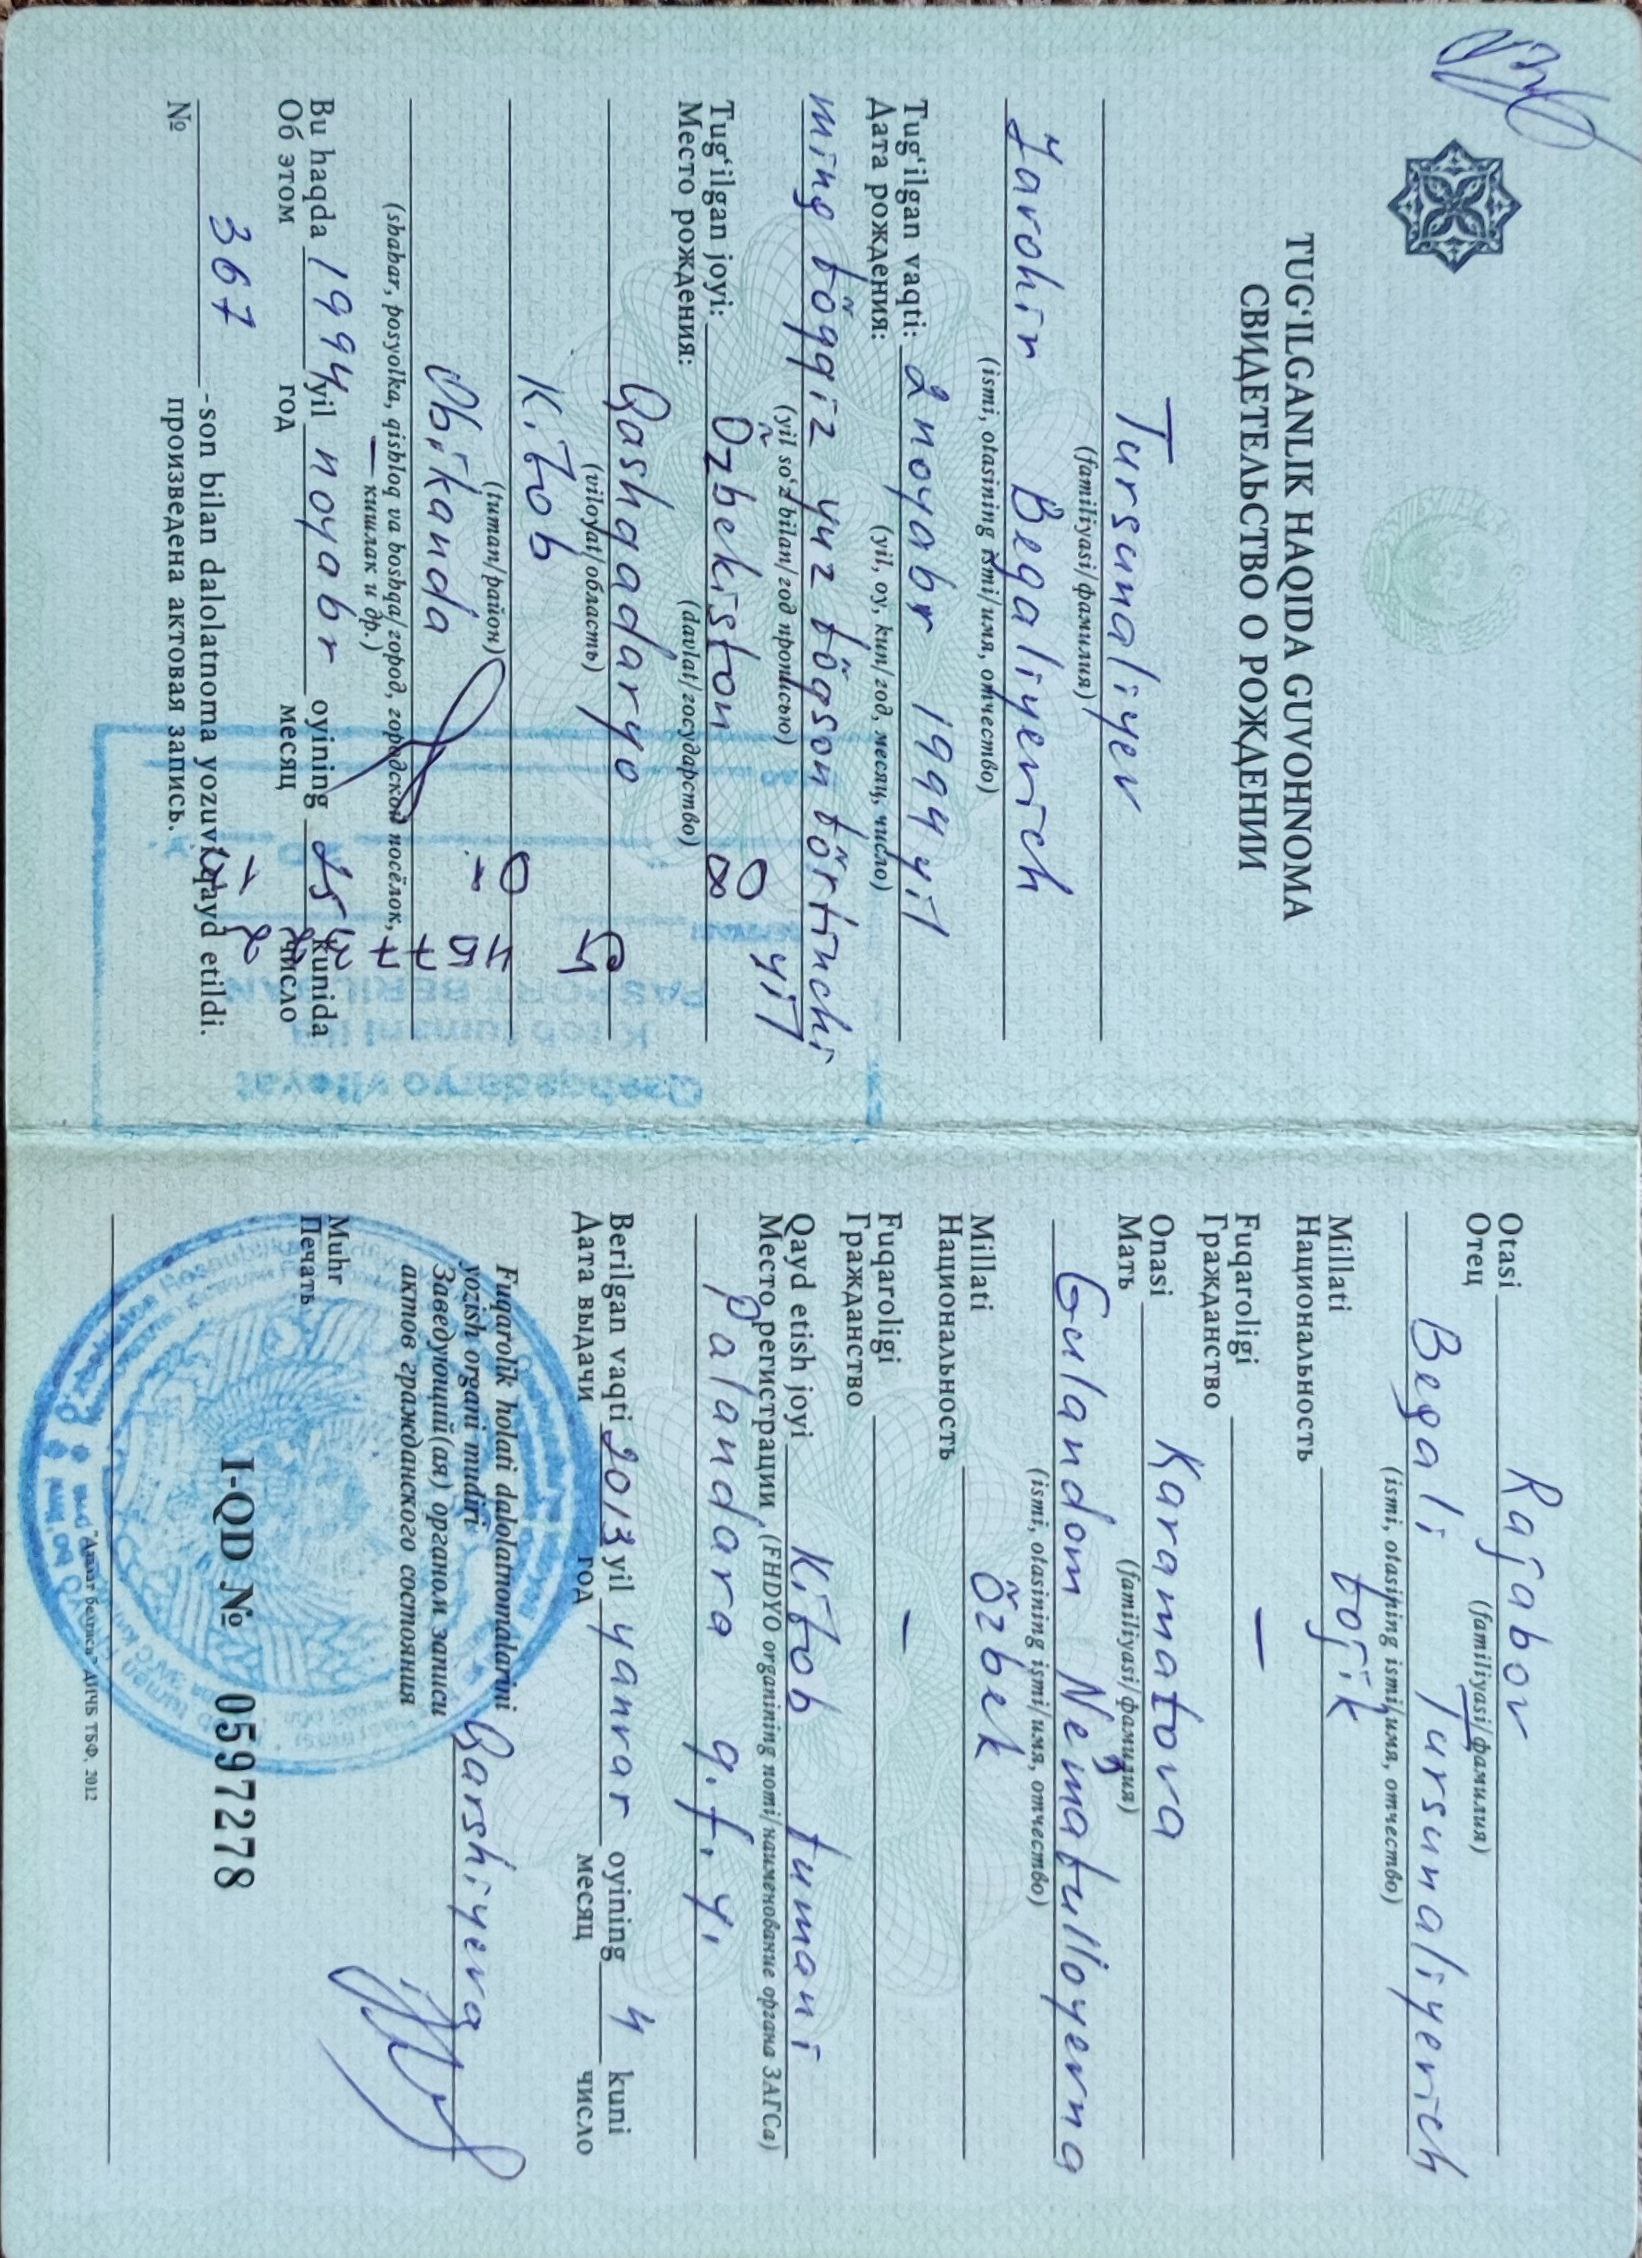 TUG‘ILGANLIK HAQIDA GUVOHNOMA
СВИДЕТЕЛЬСТВО О РОЖДЕНИИ
Tursunaliyev
(familiyasi/фамилия)
Begaliyevich
(ismi, otasining ismi/имя, отчество)
Tug‘ilgan vaqti: 2 noyabr 1994 yil
Дата рождения:
(yil, oy, kun/год, месяц, число)
ming to‘qqiz yuz to‘qson to‘rtinchi
yil
(yil so‘z bilan/год прописью)
Tug‘ilgan joyi: O‘zbekiston
Место рождения:
(davlat/государство)
Qashqadaryo
(viloyat/область)
Kitob
(tuman/район)
Obikanda
(shahar, posyolka, qishloq va boshqa/город, городской посёлок,
кишлак и др.)
Bu haqda 1994 yil noyabr oyining 25 kunida
Об этом год месяц число
№ 367 -son bilan dalolatnoma yozuvi qayd etildi.
произведена актовая запись.
Qashqadaryo viloyat
Kitob tumani IIB
PASPORT BERILGAN
Otasi Rajabov
Отец
(familiyasi/фамилия)
Begali Tursunaliyevich
(ismi, otasining ismi/имя, отчество)
Millati tojik
Национальность
Fuqaroligi —
Гражданство
Onasi Karamatova
Мать
(familiyasi/фамилия)
Gulandom Ne’matulloyevna
(ismi, otasining ismi/имя, отчество)
Millati o‘zbek
Национальность
Fuqaroligi —
Гражданство
Qayd etish joyi Kitob tumani
Место регистрации (FHDYO organining nomi/наименование органа ЗАГСа)
Palandara q.f.y.
Berilgan vaqti 2013 yil yanvar oyining 4 kuni
Дата выдачи год месяц число
Fuqarolik holati dalolatnomalarini
yozish organi mudiri
Заведующий(ая) органом записи
актов гражданского состояния
Qarshiyeva
Muhr
Печать
I-QD № 0597278